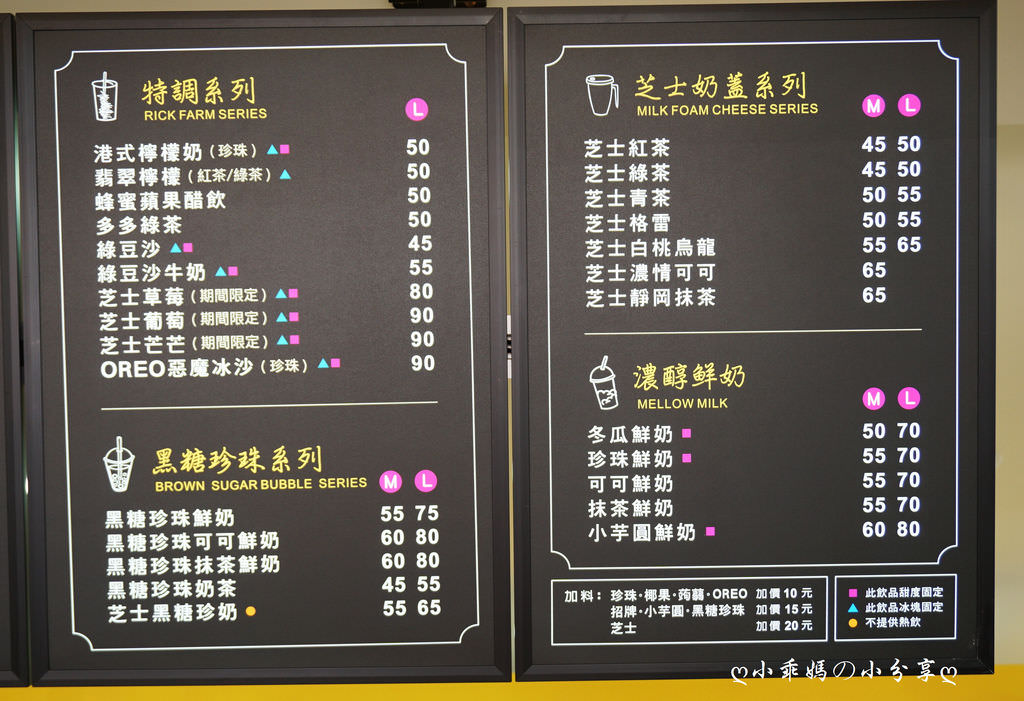 特調系列
RICK FARM SERIES
L
港式檸檬奶（珍珠）▲■ 50
翡翠檸檬（紅茶/綠茶）▲ 50
蜂蜜蘋果醋飲 50
多多綠茶 50
綠豆沙 ▲■ 45
綠豆沙牛奶 ▲■ 55
芝士草莓（期間限定）▲■ 80
芝士葡萄（期間限定）▲■ 90
芝士芒芒（期間限定）▲■ 90
OREO惡魔冰沙（珍珠）▲■ 90
黑糖珍珠系列
BROWN SUGAR BUBBLE SERIES M L
黑糖珍珠鮮奶 55 75
黑糖珍珠可可鮮奶 60 80
黑糖珍珠抹茶鮮奶 60 80
黑糖珍珠奶茶 45 55
芝士黑糖珍奶 ● 55 65
芝士奶蓋系列
MILK FOAM CHEESE SERIES M L
芝士紅茶 45 50
芝士綠茶 45 50
芝士青茶 50 55
芝士格雷 50 55
芝士白桃烏龍 55 65
芝士濃情可可 65
芝士靜岡抹茶 65
濃醇鮮奶
MELLOW MILK M L
冬瓜鮮奶 ■ 50 70
珍珠鮮奶 ■ 55 70
可可鮮奶 55 70
抹茶鮮奶 55 70
小芋圓鮮奶 ■ 60 80
加料：珍珠·椰果·蒟蒻·OREO 加價 10 元
招牌·小芋圓·黑糖珍珠 加價 15 元
芝士 加價 20 元
■ 此飲品甜度固定
▲ 此飲品冰塊固定
● 不提供熱飲
ღ小乖媽の小分享ღ